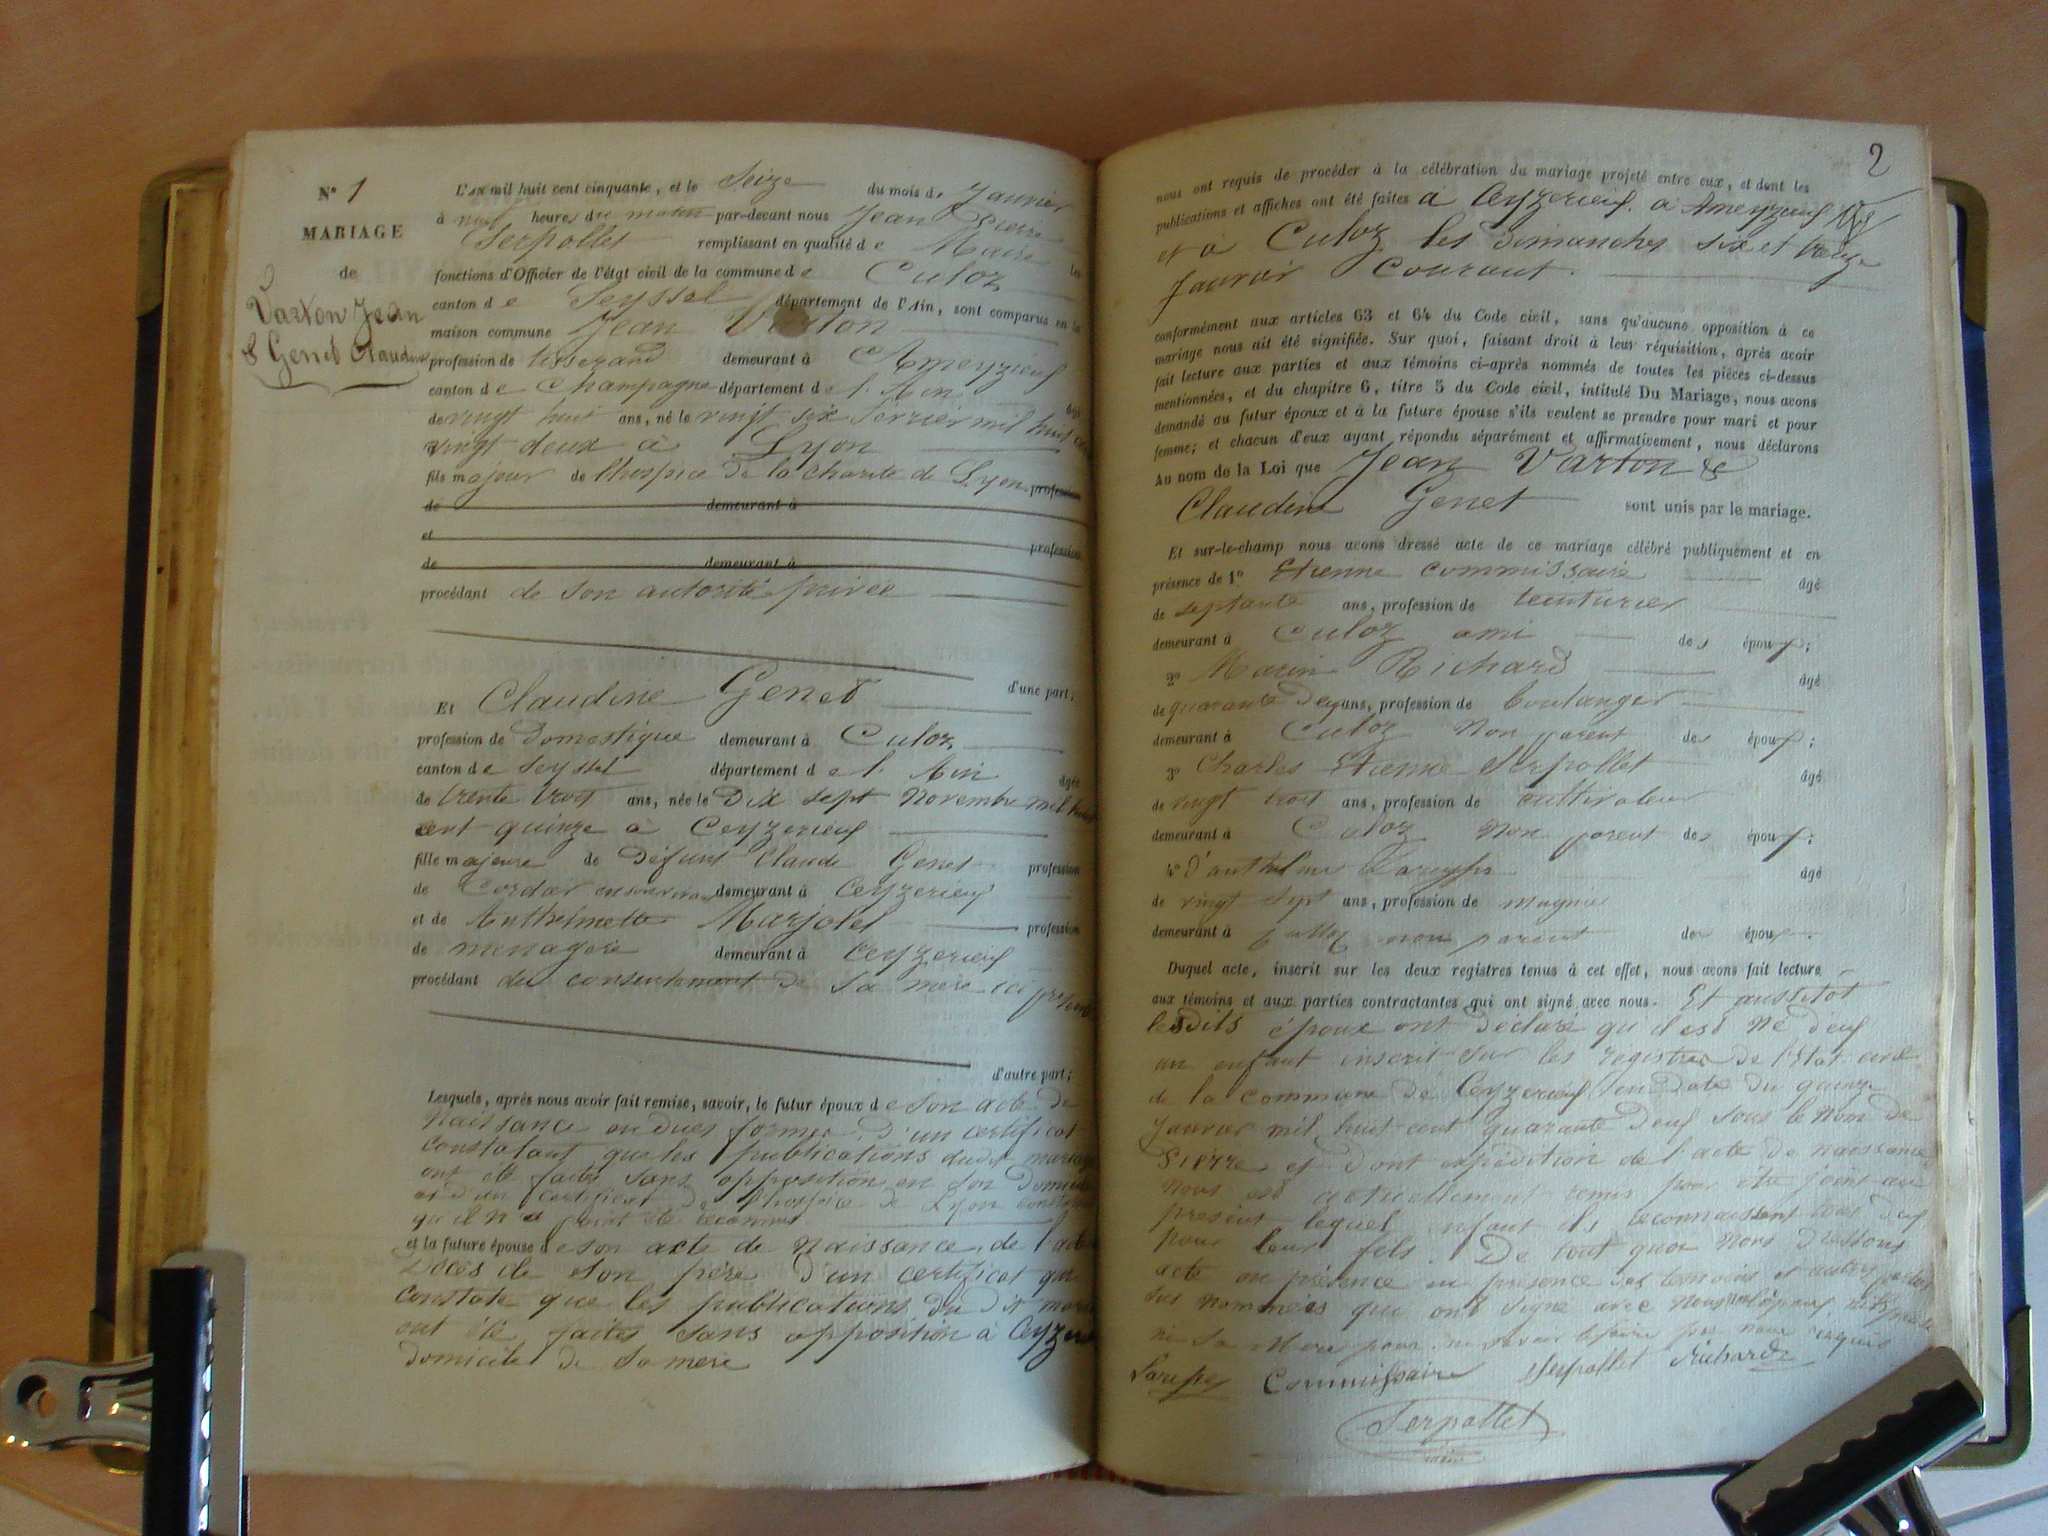 N° 1
MARIAGE
de
Varton Jean
& Genet Claudine
L'an mil huit cent cinquante, et le Seize du mois de Janvier
à neuf heures du matin par-devant nous Jean Pierre
Serpollet remplissant en qualité de Maire les
fonctions d'Officier de l'état civil de la commune de Culoz
canton de Seyssel département de l'Ain, sont comparus en la
maison commune Jean Varton
profession de tisserand demeurant à Ameyzieuf
canton de Champagne département de l'Ain âgé
de vingt huit ans, né le vingt six fevrier mil huit cent
vingt deux à Lyon
fils majeur de l'hospice de la charité de Lyon profession
de demeurant à
et profession
de demeurant à
procédant de son autorité privée
d'une part;
Et Claudine Genet
profession de Domestique demeurant à Culoz
canton de Seyssel département de l'Ain âgée
de trente trois ans, née le Dix sept Novembre mil huit
cent quinze à Ceyzerieuf
fille majeure de défunt Claude Genet profession
de Cordier demeurant à Ceyzerieuf
et de Anthelmette Marjolet profession
de menagere demeurant à Ceyzerieuf
procédant du consentement de sa mère ici présente
d'autre part;
Lesquels, après nous avoir fait remise, savoir, le futur époux de son acte de
naissance en dues formes, d'un certificat
constatant que les publications dudit mariage
ont été faites sans opposition en son domicile
et d'un certificat de l'hospice de Lyon
qu'il n'a point été reconnu
et la future épouse de son acte de naissance, de l'acte
Décès de son père d'un certificat qui
constate que les publications du dit mariage
ont été faites sans opposition à Ceyzerieuf
domicile de sa mère
2
nous ont requis de procéder à la célébration du mariage projeté entre eux, et dont les
publications et affiches ont été faites à Ceyzerieuf. à Ameyzieuf
et à Culoz les dimanches six et treize
janvier courant.
conformément aux articles 63 et 64 du Code civil, sans qu'aucune opposition à ce
mariage nous ait été signifiée. Sur quoi, faisant droit à leur réquisition, après avoir
fait lecture aux parties et aux témoins ci-après nommés de toutes les pièces ci-dessus
mentionnées, et du chapitre 6, titre 5 du Code civil, intitulé Du Mariage, nous avons
demandé au futur époux et à la future épouse s'ils veulent se prendre pour mari et pour
femme; et chacun d'eux ayant répondu séparément et affirmativement, nous déclarons
Au nom de la Loi que Jean Varton &
Claudine Genet sont unis par le mariage.
Et sur-le-champ nous avons dressé acte de ce mariage célébré publiquement et en
présence de 1° Etienne Commissaire âgé
de septante ans, profession de teinturier
demeurant à Culoz ami des époux;
2° Marin Richard âgé
de quarante deux ans, profession de boulanger
demeurant à Culoz non parent des époux;
3° Charles Etienne Serpollet âgé
de vingt trois ans, profession de cultivateur
demeurant à Culoz non parent des époux;
4° âgé
de vingt sept ans, profession de
demeurant à Culloz non parent des époux.
Duquel acte, inscrit sur les deux registres tenus à cet effet, nous avons fait lecture
aux témoins et aux parties contractantes qui ont signé avec nous. Et aussitôt
lesdits époux ont déclaré qu'il est né d'eux
un enfant inscrit sur les registres de l'Etat civil
de la commune de Ceyzerieuf en date du quinze
janvier mil huit cent quarante neuf sous le nom de
Pierre et dont expédition de l'acte de naissance
nous est actuellement remis pour être joint au
présent lequel enfant ils reconnaissent tous deux
pour leur fils. De tout quoi nous dressons
acte en présence en présence des temoins et autres parties
sus nommées qui ont signé avec nous
ni sa mère pour ne savoir le faire
Commissaire Serpollet Richard
Serpollet
maire